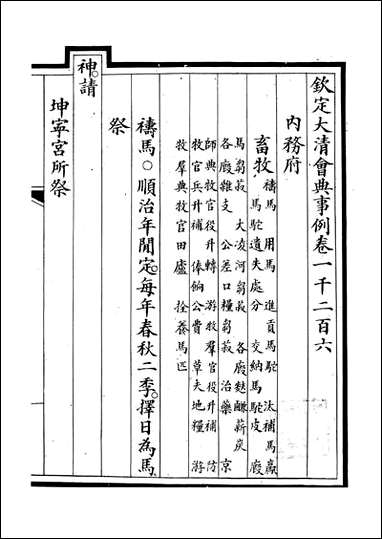 欽定大清會典事例卷一千二百六
內務府
畜牧 禱馬 用馬 進貢馬駝 汰補馬贏
馬駝遺失處分 交納馬駝皮 廢
馬芻菽 大凌河芻菽 各廄麩薪炭
各廄雜支 公差口糧芻菽 治藥 京
師典牧官役升轉 游牧羣官役升補 防
牧官兵升補 俸餉公費 草夫地糧 游
牧羣典牧官田廬 拴養馬匹
禱馬○順治年閒定。每年春秋二季。擇日為馬
祭
神。請
坤寧宮所祭